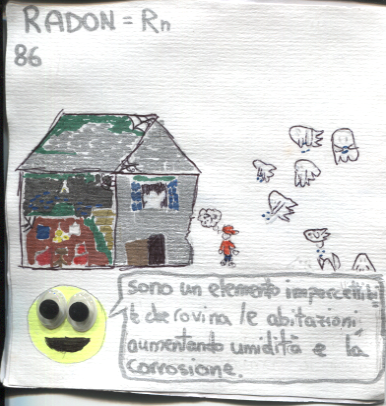 RADON = Rn
86
sono un elemento impercettibi
le che rovina le abitazioni,
aumentando umidità e la
corrosione.